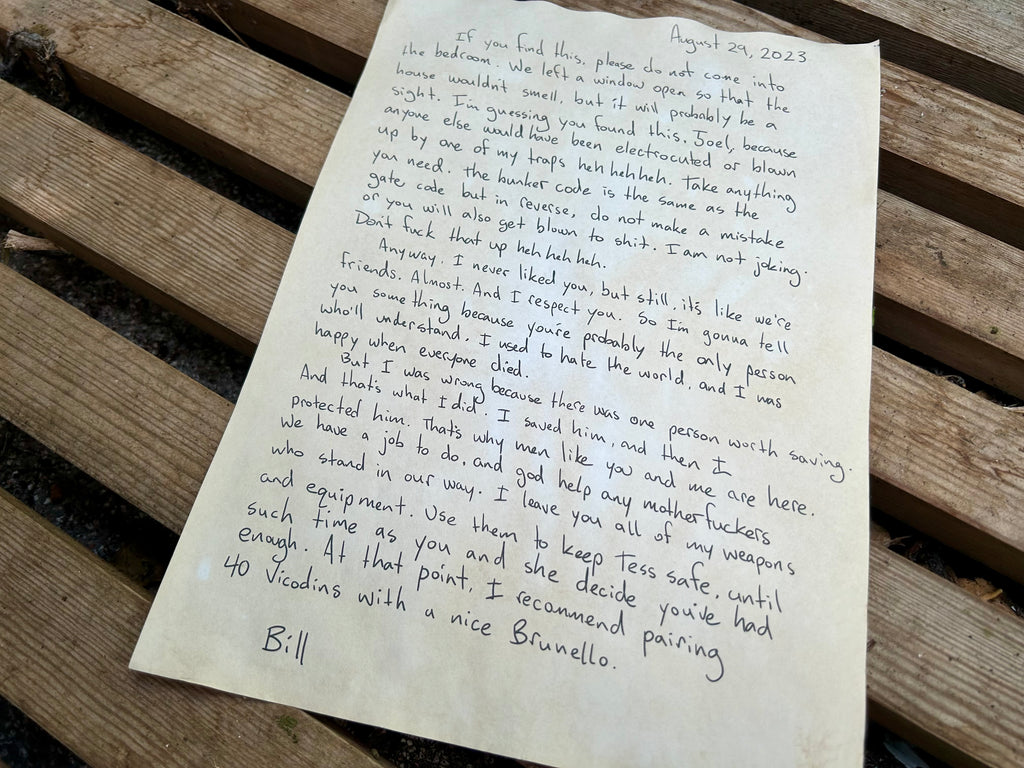 August 29, 2023
If you find this, please do not come into
the bedroom. We left a window open so that the
house wouldn't smell, but it will probably be a
sight. I'm guessing you found this, Joel, because
anyone else would have been electrocuted or blown
up by one of my traps heh heh heh. Take anything
you need. the bunker code is the same as the
gate code but in reverse, do not make a mistake
or you will also get blown to shit. I am not joking.
Don't fuck that up heh heh heh.
Anyway. I never liked you, but still, it's like we're
friends. Almost. And I respect you. So I'm gonna tell
you something because you're probably the only person
who'll understand. I used to hate the world, and I was
happy when everyone died.
But I was wrong because there was one person worth saving.
And that's what I did. I saved him, and then I
protected him. That's why men like you and me are here.
We have a job to do, and god help any motherfuckers
who stand in our way. I leave you all of my weapons
and equipment. Use them to keep Tess safe, until
such time as you and she decide you've had
enough. At that point, I recommend pairing
40 Vicodins with a nice Brunello.
Bill